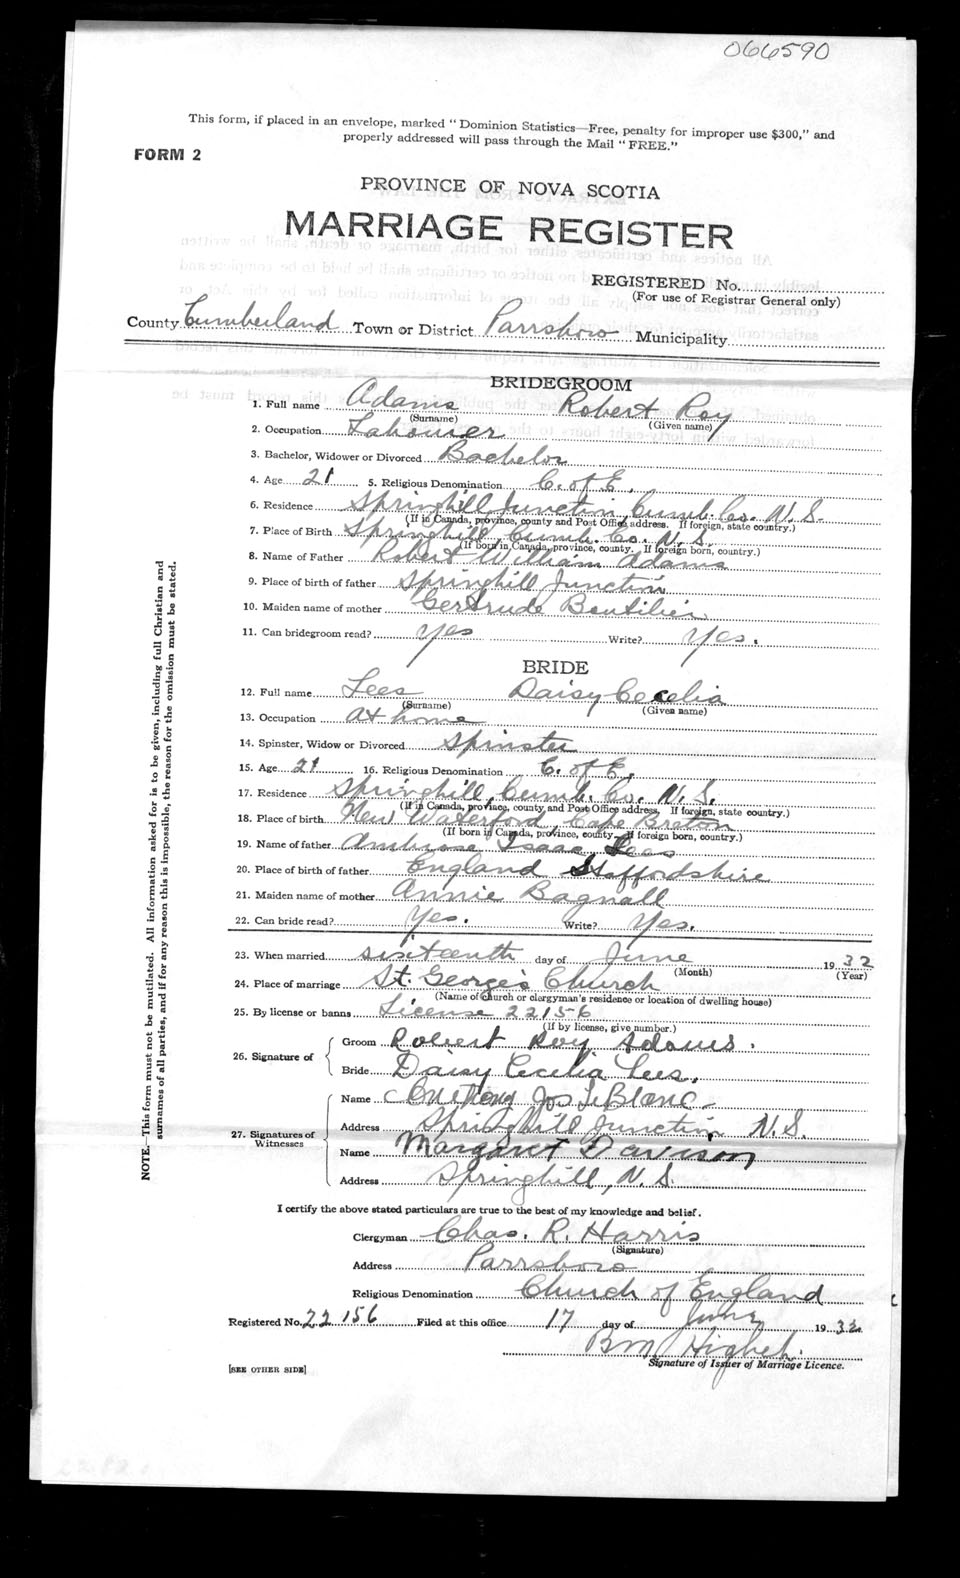 066590
This form, if placed in an envelope, marked " Dominion Statistics—Free, penalty for improper use $300," and
properly addressed will pass through the Mail " FREE."
FORM 2
PROVINCE OF NOVA SCOTIA
MARRIAGE REGISTER
REGISTERED No.
(For use of Registrar General only)
County Cumberland Town or District Parrsboro Municipality
BRIDEGROOM
1. Full name Adams Robert Roy
(Surname) (Given name)
2. Occupation Labourer
3. Bachelor, Widower or Divorced Bachelor
4. Age 21 5. Religious Denomination C. of E.
6. Residence Springhill Junction, Cumb. Co. N. S.
(If in Canada, province, county and Post Office address. If foreign, state country.)
7. Place of Birth Springhill, Cumb. Co. N. S.
(If born in Canada, province, county. If foreign born, country.)
8. Name of Father Robert William Adams
9. Place of birth of father Springhill Junction
10. Maiden name of mother Gertrude Boutilier
11. Can bridegroom read? Yes Write? Yes.
BRIDE
12. Full name Lees Daisy Cecelia
(Surname) (Given name)
13. Occupation At home
14. Spinster, Widow or Divorced Spinster
15. Age 21 16. Religious Denomination C. of E.
17. Residence Springhill, Cumb. Co. N. S.
(If in Canada, province, county and Post Office address. If foreign, state country.)
18. Place of birth New Waterford, Cape Breton
(If born in Canada, province, county—If foreign born, country.)
19. Name of father Ambrose Isaac Lees
20. Place of birth of father England Staffordshire
21. Maiden name of mother Annie Bagnall
22. Can bride read? Yes. Write? Yes.
23. When married sixteenth day of June 1932
(Month) (Year)
24. Place of marriage St. George's Church
(Name of church or clergyman's residence or location of dwelling house)
25. By license or banns License 22156
(If by license, give number.)
26. Signature of
Groom Robert Roy Adams.
Bride Daisy Cecilia Lees.
27. Signatures of Witnesses
Name Jos LeBlanc
Address Springhill Junction N. S.
Name Margaret Davison
Address Springhill, N. S.
I certify the above stated particulars are true to the best of my knowledge and belief.
Clergyman Chas. R. Harris
(Signature)
Address Parrsboro
Religious Denomination Church of England
Registered No. 22156 Filed at this office 17 day of June 1932
Signature of Issuer of Marriage Licence.
[SEE OTHER SIDE]
NOTE.—This form must not be mutilated. All information asked for is to be given, including full Christian and
surnames of all parties, and if for any reason this is impossible, the reason for the omission must be stated.